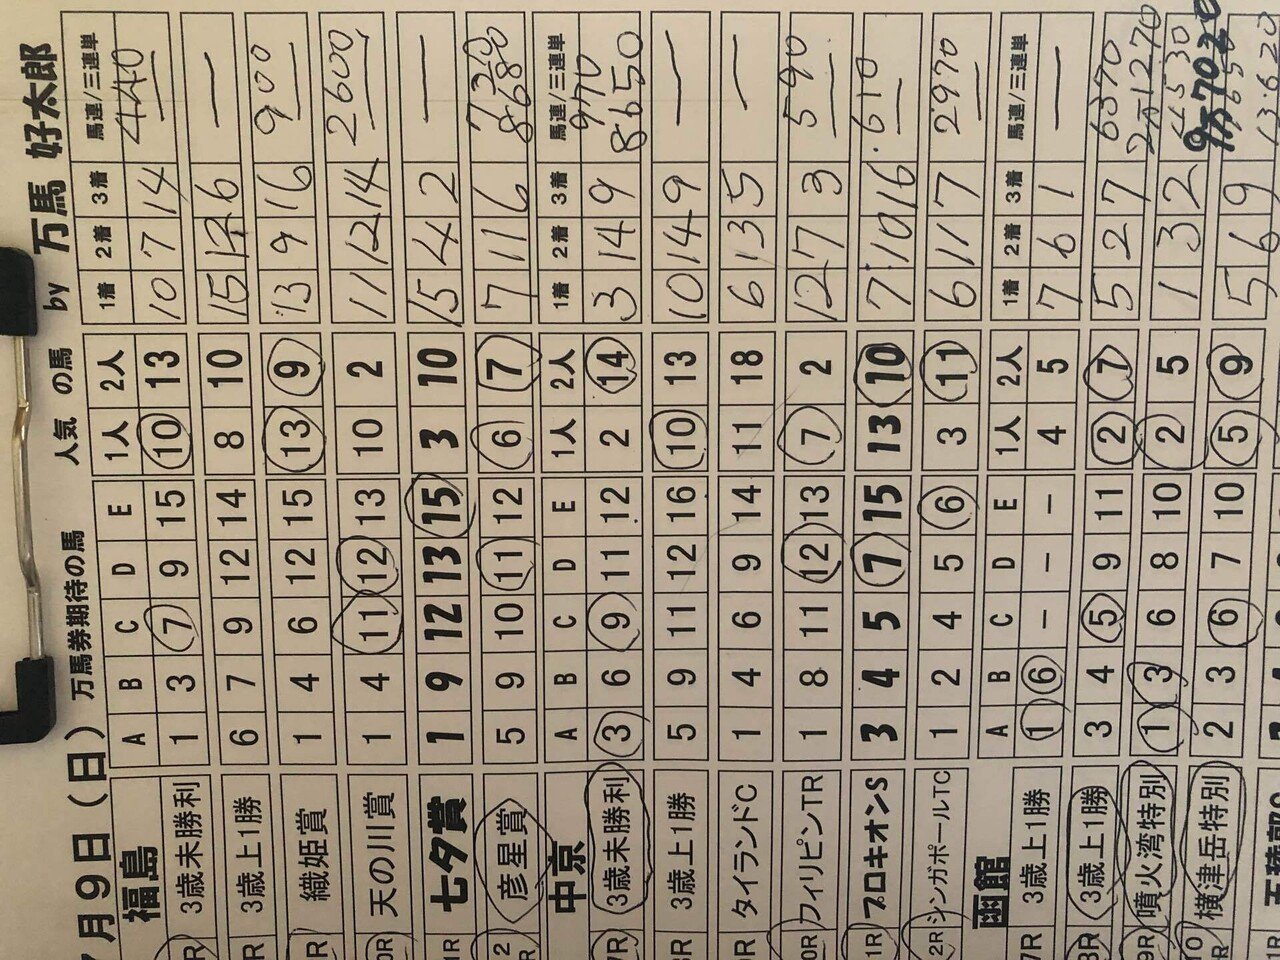 月９日（日） 万馬券期待の馬 人気 の馬 by 万馬 好太郎
福島 A B C D E 1人 2人 1着 2着 3着 馬連/三連単
3歳未勝利 1 3 7 9 15 10 13 10 7 14 440
3歳上1勝 6 7 9 12 14 8 10 15 12 6 —
織姫賞 1 4 6 12 15 13 9 13 9 16 900
天の川賞 1 4 11 12 13 10 2 11 12 14 2600
七夕賞 1 9 12 13 15 3 10 15 4 2 —
彦星賞 5 9 10 11 12 6 7 7 11 6 7320 8680
中京 A B C D E 1人 2人 1着 2着 3着 馬連/三連単
3歳未勝利 3 6 9 11 12 2 14 3 14 9 970 8650
3歳上1勝 5 9 11 12 16 10 13 10 14 9 —
タイランドC 1 4 6 9 14 11 18 6 13 5 —
フィリピンTR 1 8 11 12 13 7 2 12 7 3 590
1R プロキオンS 3 4 5 7 15 13 10 7 10 16 610
2R シンガポールTC 1 2 4 5 6 3 11 6 11 7 2970
函館 A B C D E 1人 2人 1着 2着 3着 馬連/三連単
7R 3歳上1勝 1 6 – – – 4 5 7 6 1 —
8R 3歳上1勝 3 4 5 9 11 2 7 5 2 7 6370 21270
9R 噴火湾特別 1 3 6 8 10 2 5 1 3 2 4530
10R 横津岳特別 2 3 6 7 10 5 9 5 6 9 13620